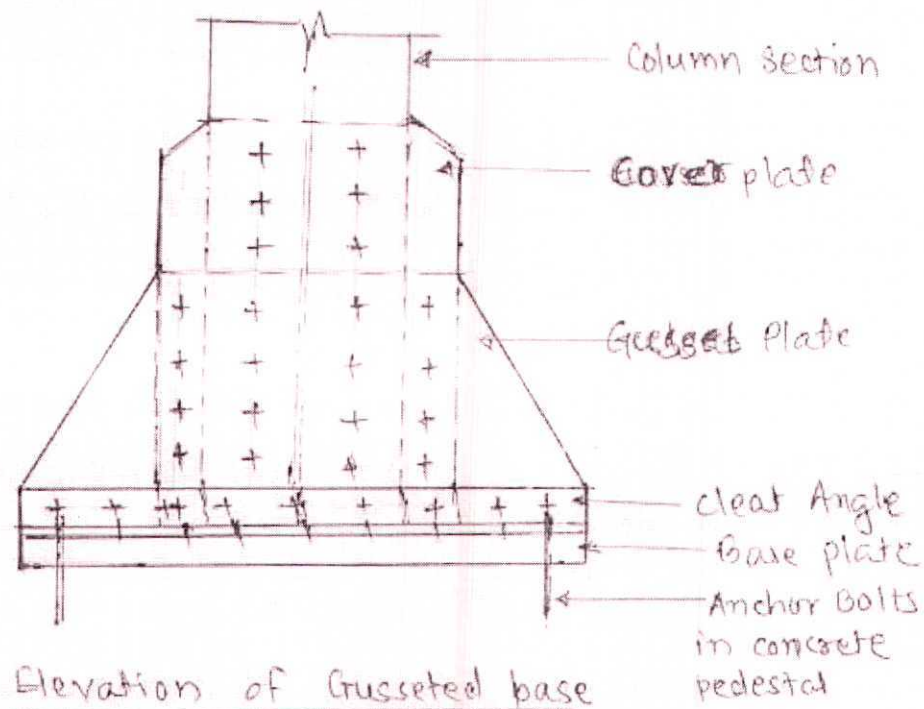 Column section
Cover plate
Gusset Plate
Cleat Angle
Base plate
Anchor Bolts
in concrete
pedestal
Elevation of Gusseted base